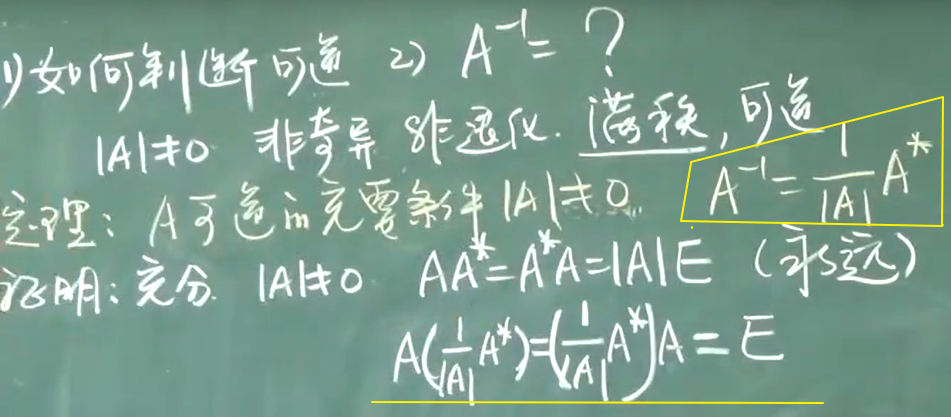 1) 如何判断可逆 2) A⁻¹ = ?
|A|≠0 非奇异 非退化. 满秩, 可逆
定理: A可逆的充要条件 |A|≠0. A⁻¹ = 1/|A| A*
证明: 充分. |A|≠0 AA* = A*A = |A|E (永远)
A(1/|A| A*) = (1/|A| A*)A = E